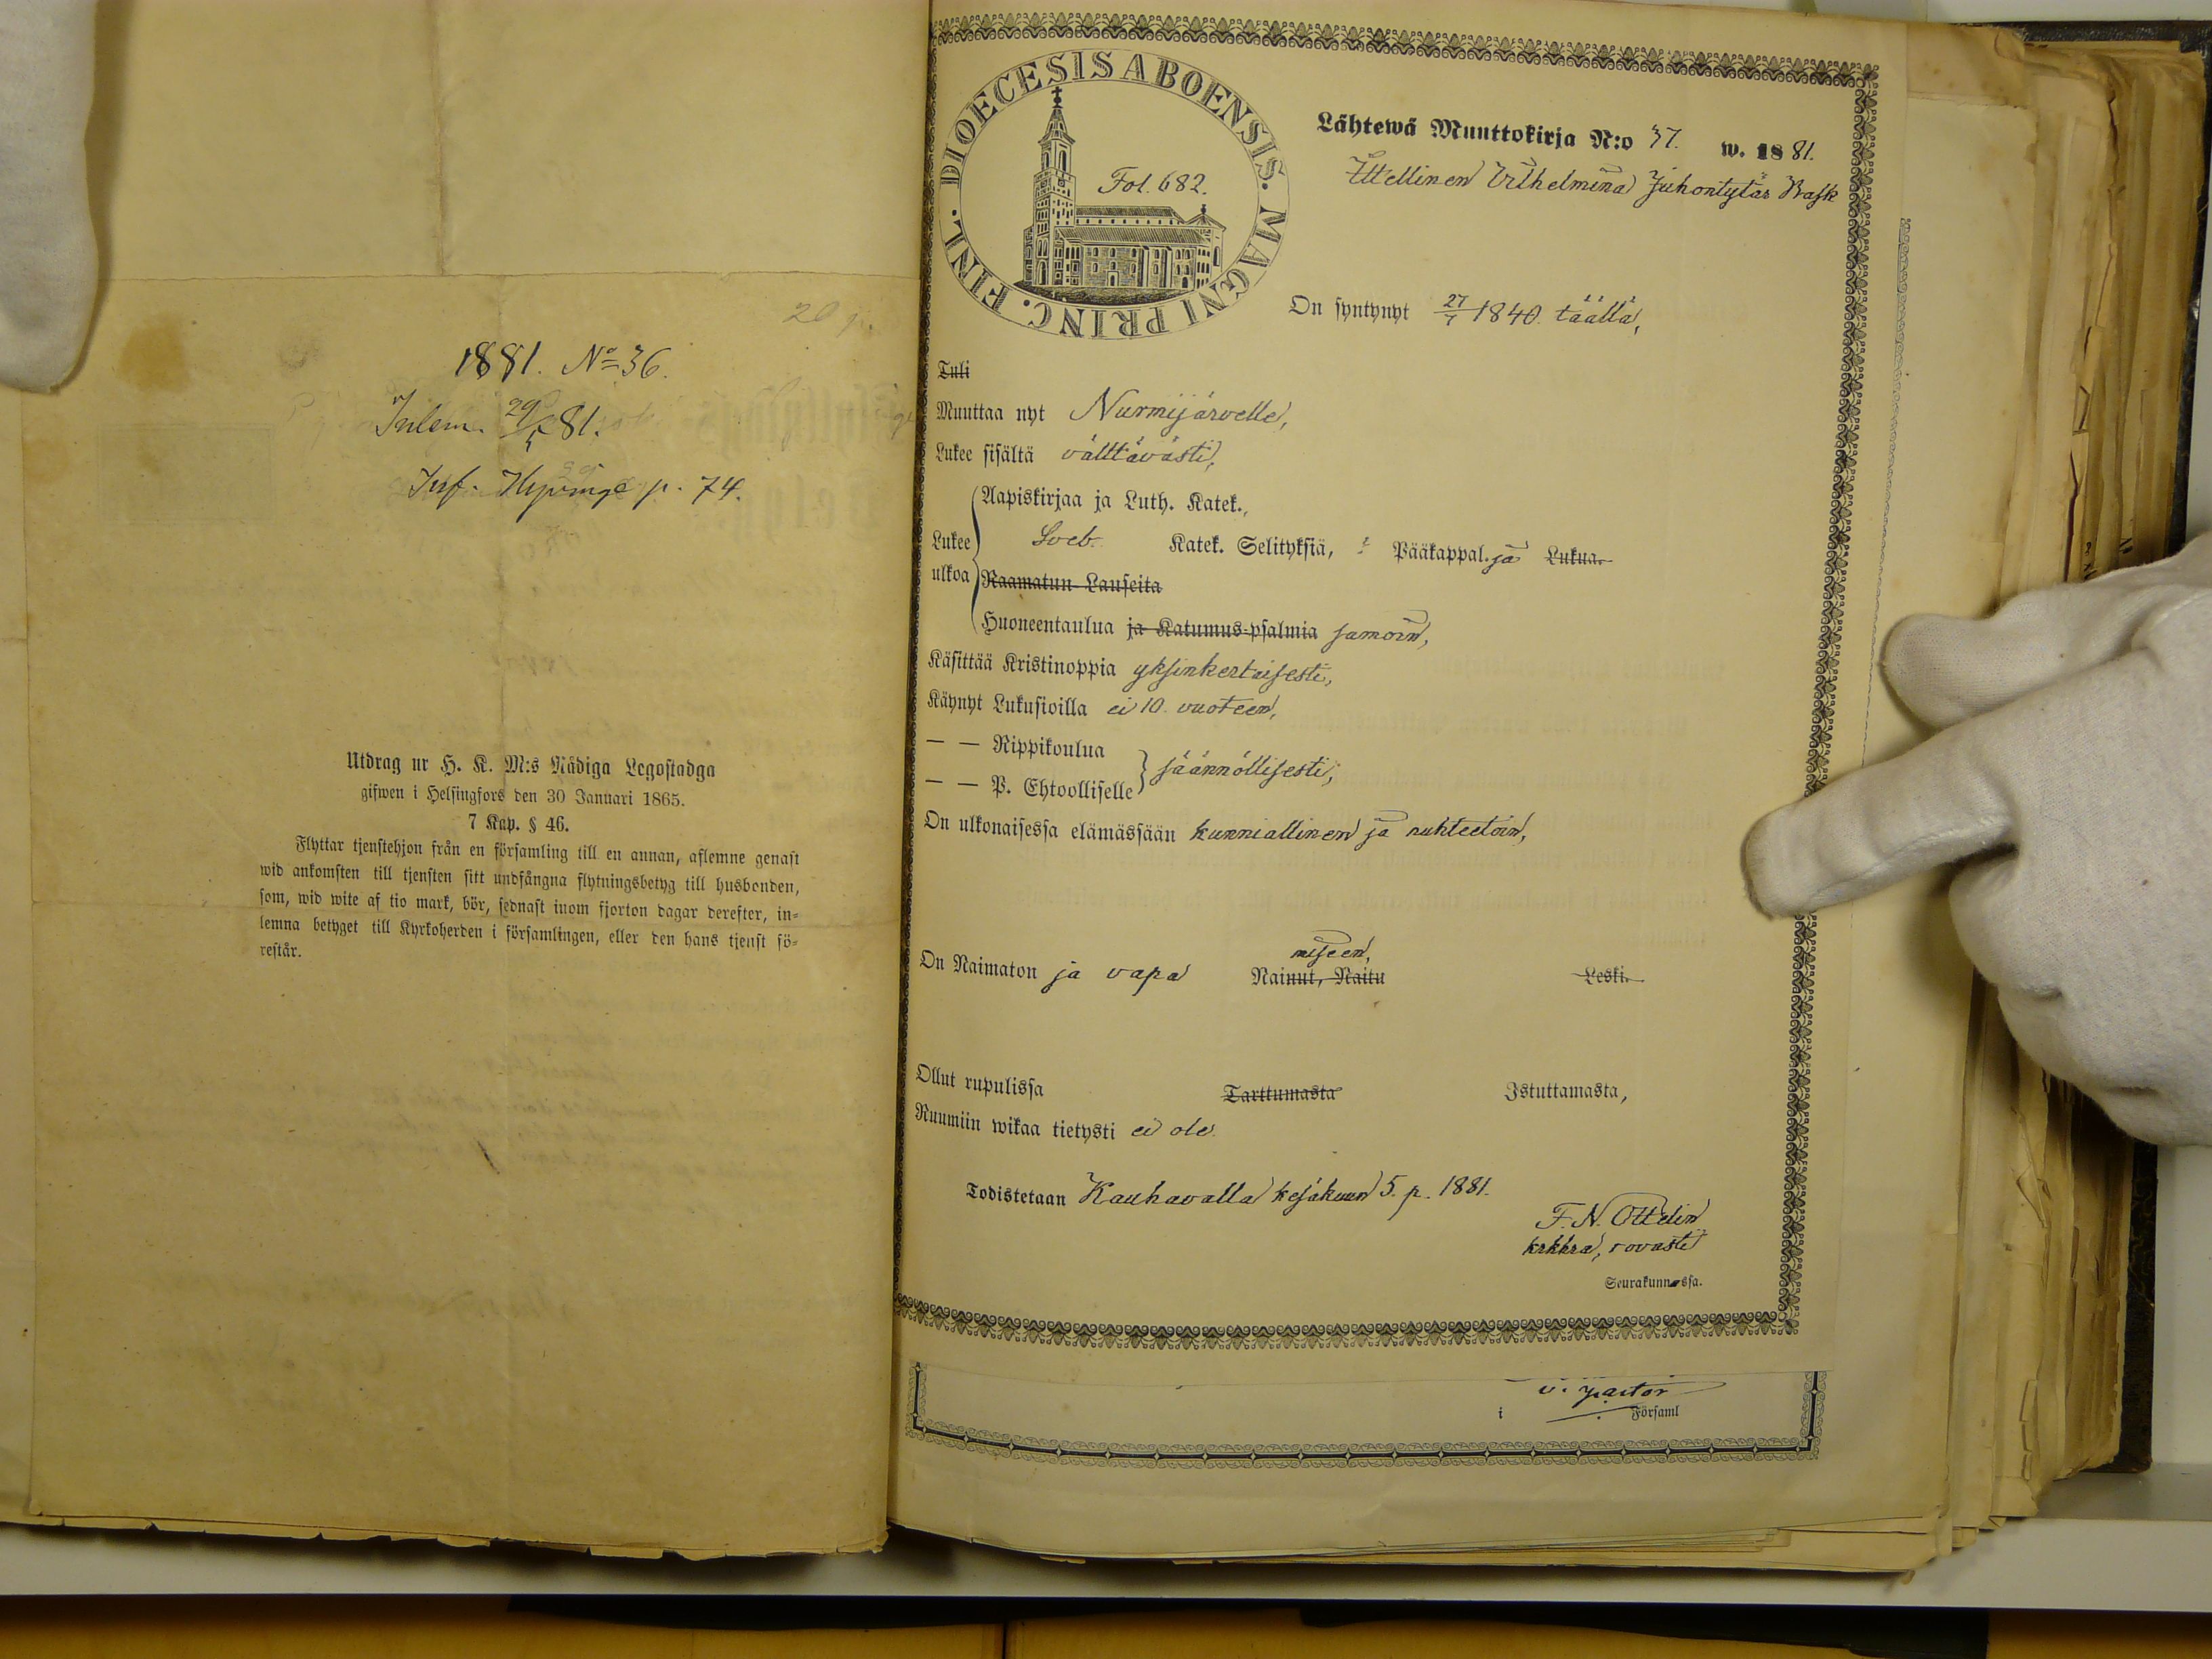 1881. No 36.
Inlem. 29/5 81.
Insf. Hyvinge p. 74.
Utdrag ur H. K. M:s Nådiga Legostadga
gifwen i Helsingfors den 30 Januari 1865.
7 Kap. § 46.
Flyttar tjenstehjon från en församling till en annan, aflemne genast
wid ankomsten till tjensten sitt undfångna flytningsbetyg till husbonden,
som, wid wite af tio mark, bör, sednast inom fjorton dagar derefter, in=
lemna betyget till Kyrkoherden i församlingen, eller den hans tjenst fö=
restår.
DIOECESIS ABOENSIS. MAGNI PRINC. FINL.
Fol. 682.
Lähtewä Muuttokirja N:o 37. w. 1881.
Ittellinen Vilhelmina Juhontytär Rask
On syntynyt 27/7 1840 täällä,
Tuli
Muuttaa nyt Nurmijärvelle,
Lukee sisältä välttävästi,
Aapiskirjaa ja Luth. Katek.,
Lukee ulkoa
Sveb. Katek. Selityksiä, Pääkappal. ja Lukua.
Raamatun Lauseita
Huoneentaulua ja Katumus-psalmia samoin,
Käsittää Kristinoppia yksinkertaisesti,
Käynyt Lukusioilla ei 10 vuoteen,
— — Rippikoulua
— — P. Ehtoolliselle
säännöllisesti,
On ulkonaisessa elämässään kunniallinen ja nuhteetoin,
On Naimaton ja vapa Nainut, Naitu miseen, Leski.
Ollut rupulissa Tarttumasta Istuttamasta,
Ruumiin wikaa tietysti ei ole.
Todistetaan Kauhavalla kesäkuun 5. p. 1881.
F. N. Ottelin
krkhra, rovasti
Seurakunnassa.
v. pastor
i Församl